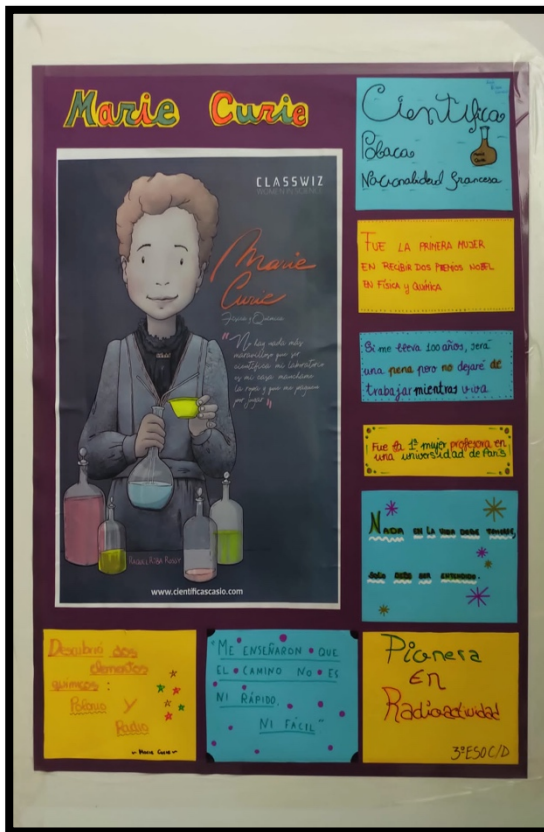 Marie Curie
CLASSWIZ
WOMEN IN SCIENCE
Marie
Curie
Física y Química
"No hay nada más
maravilloso que ser
científica, mi laboratorio
es mi casa, mancharme
la ropa y que me paguen
por jugar"
RAQUEL RIBA ROSSY
www.cientificascasio.com
Científica
Polaca
Nacionalidad francesa
FUE LA PRIMERA MUJER
EN RECIBIR DOS PREMIOS NOBEL
EN FÍSICA y QUÍMICA
Si me lleva 100 años, será
una pena pero no dejaré de
trabajar mientras viva
Fue la 1ª mujer profesora en
una universidad de París
NADA EN LA VIDA DEBE TEMERSE,
SOLO DEBE SER ENTENDIDO.
Descubrió dos
elementos
químicos:
Polonio y
Radio
~ Marie Curie ~
"ME ENSEÑARON QUE
EL CAMINO NO ES
NI RÁPIDO,
NI FÁCIL"
Pionera
EN
Radioactividad
3ºESO C/D